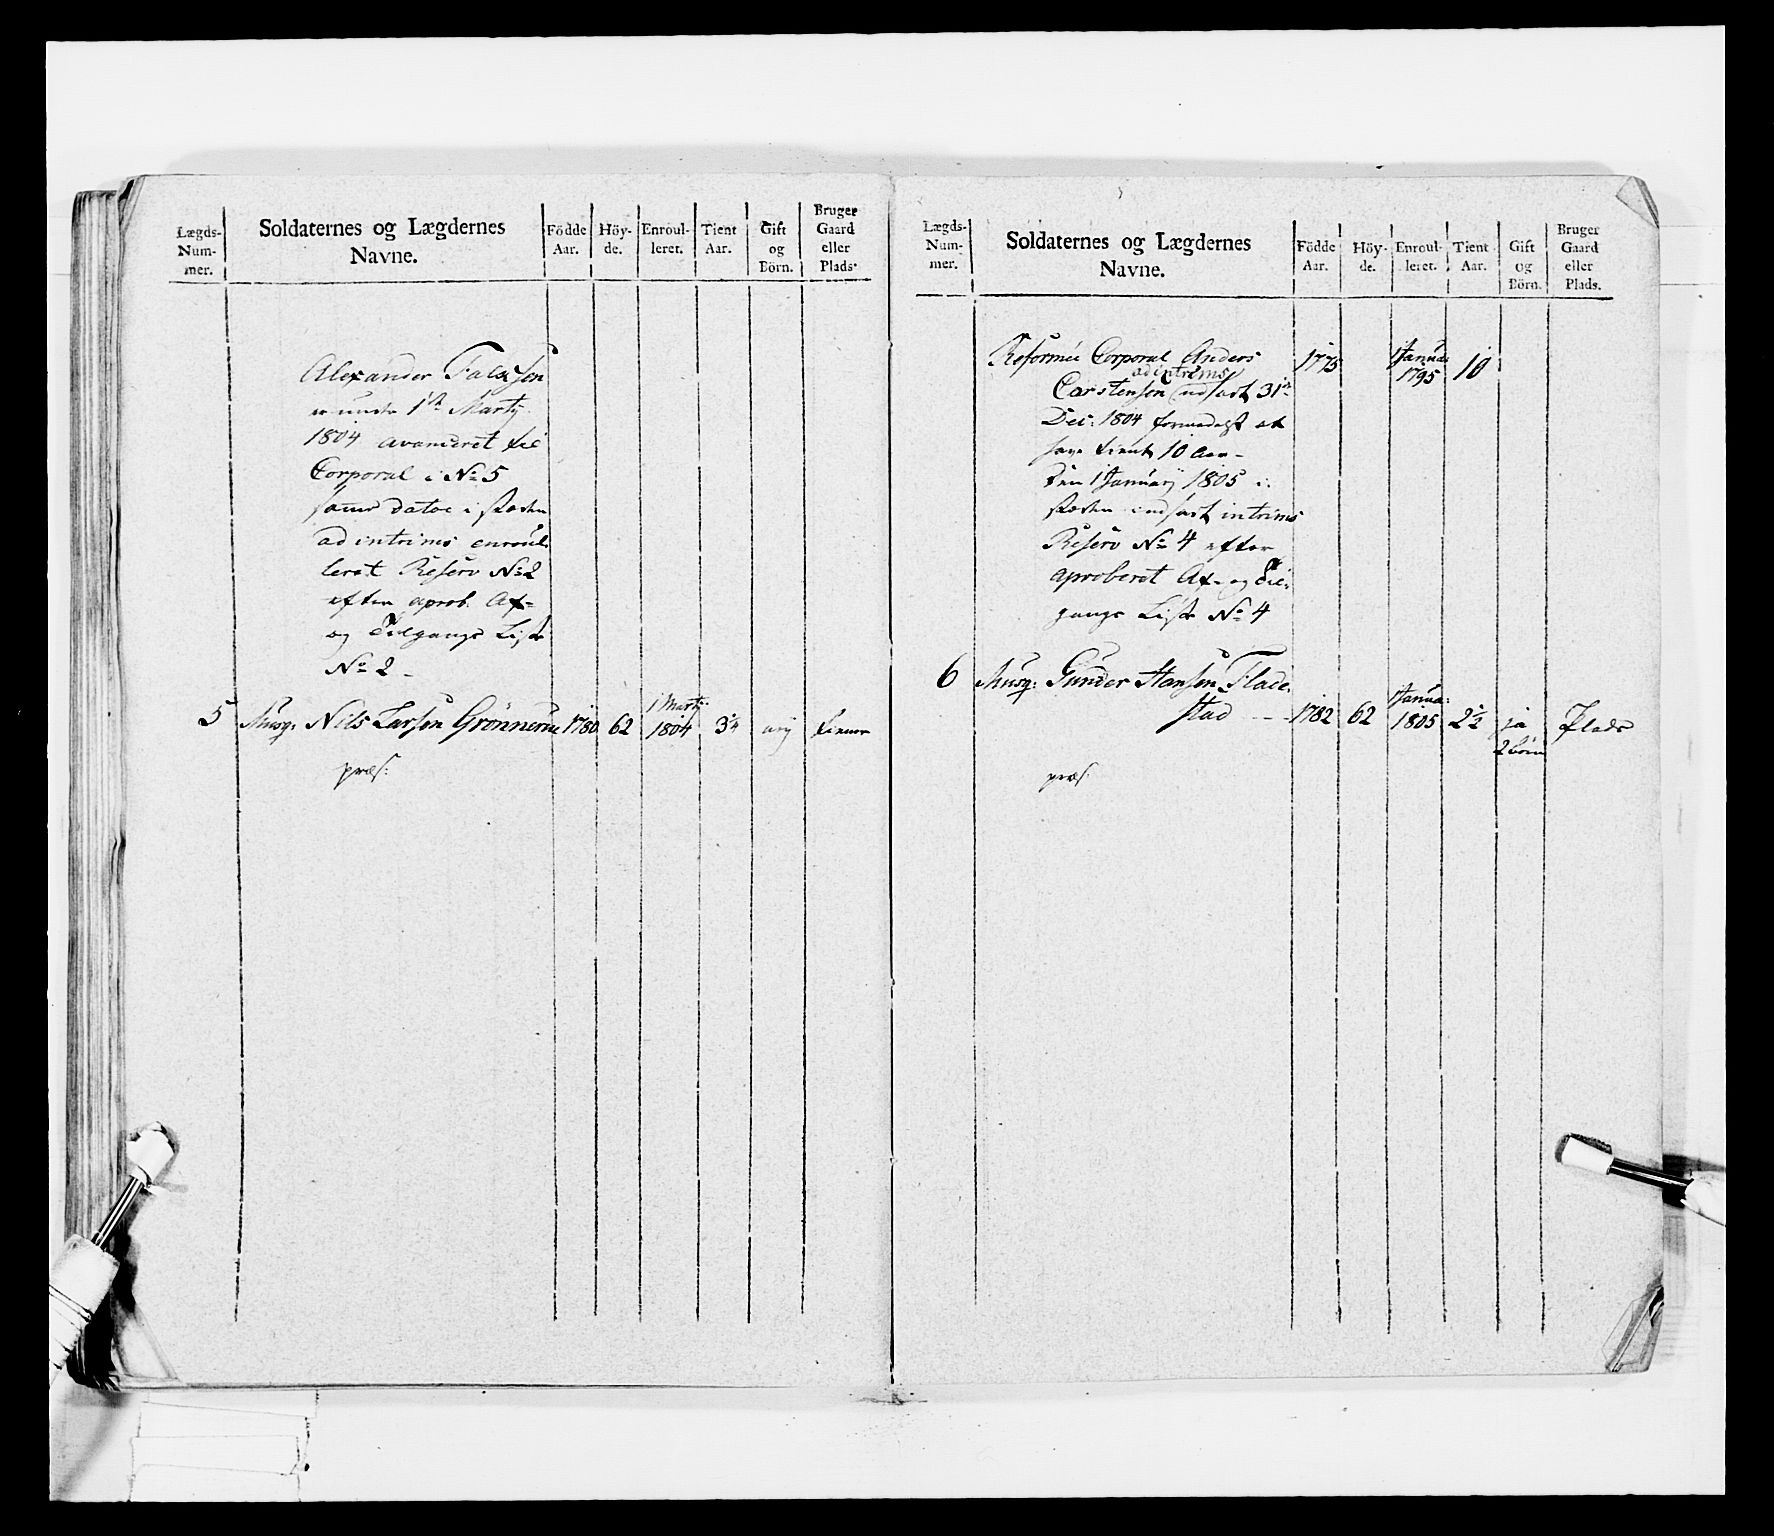 Lægds-
Num-
mer.
Soldaternes og Lægdernes
Navne.
Födde
Aar.
Höy-
de.
Enroul-
leret.
Tient
Aar.
Gift
og
Börn.
Bruger
Gaard
eller
Plads.
Alexander Falchsen
er under 1te Martÿ
1804 avanceret til
Corporal i No 5
samme datoe i Stæden
ad intrims enroul-
leret Reserv No 2
efter aprob. Af-
og Tilgangs Liste
No 2
5 Musq: Nils Larsen Grønnerue 1780 62 1 Martÿ 1804 3¼ neÿ tiener
præs:
Lægds-
Num-
mer.
Soldaternes og Lægdernes
Navne.
Födde
Aar.
Höy-
de.
Enroul-
leret.
Tient
Aar.
Gift
og
Börn.
Bruger
Gaard
eller
Plads.
Reformée Corporal Anders 1775 1 Janua: 1795 10
ad intrims
Carstensen udsat 31te
Dec: 1804 formedelst at
have tient 10 Aar -
den 1 Januarÿ 1805 i
Stæden indsat intrims
Reserv No 4 efter
aproberet Af- og Til-
gangs Liste No 4
6 Musq: Gunder Hansen Flade-
stad - - 1782 62 1 Janua: 1805 2½ ja Plads
2 börn
præs: